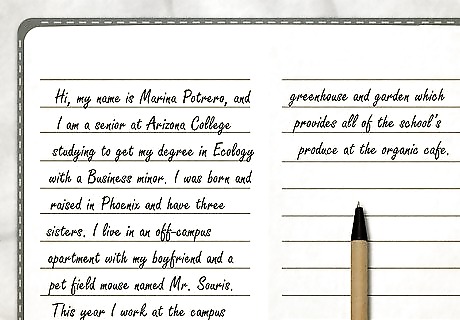 Hi, my name is Marina Potrero, and
I am a senior at Arizona College
studying to get my degree in Ecology
with a Business minor. I was born and
raised in Phoenix and have three
sisters. I live in an off-campus
apartment with my boyfriend and a
pet field mouse named Mr. Souris.
This year I work at the campus
greenhouse and garden which
provides all of the school's
produce at the organic cafe.